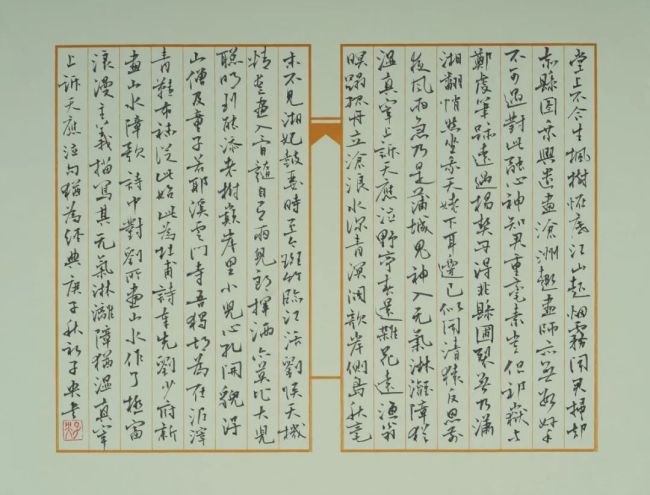 堂上不合生楓樹怪底江山起烟霧聞君掃却
赤縣圖乘興遣畫滄洲趣畫師亦無數好手
不可遇對此融心神知君重毫素豈但祁嶽与
鄭虔筆跡遠過楊契丹得非縣圃裂無乃瀟
湘翻悄然坐我天姥下耳邊已似聞清猿反思前
夜風雨急乃是蒲城鬼神入元氣淋漓障猶
溼真宰上訴天應泣野亭春還雜花遠漁翁
暝蹋孤舟立滄浪水深青溟闊欹岸側島秋毫
末不見湘妃鼓瑟時至今斑竹臨江活劉侯天機
精愛畫入骨髓自有兩兒郎揮洒亦莫比大兒
聰明到能添老樹巔崖里小兒心孔開貌得
山僧及童子若耶溪雲門寺吾獨胡為在泥滓
青鞋布袜從此始此為杜甫詩奉先劉少府新
畫山水障歌詩中對劉所畫山水作了極富
浪漫主義描寫其元氣淋漓障猶溼真宰
上訴天應泣句猶為經典庚子秋初子央書